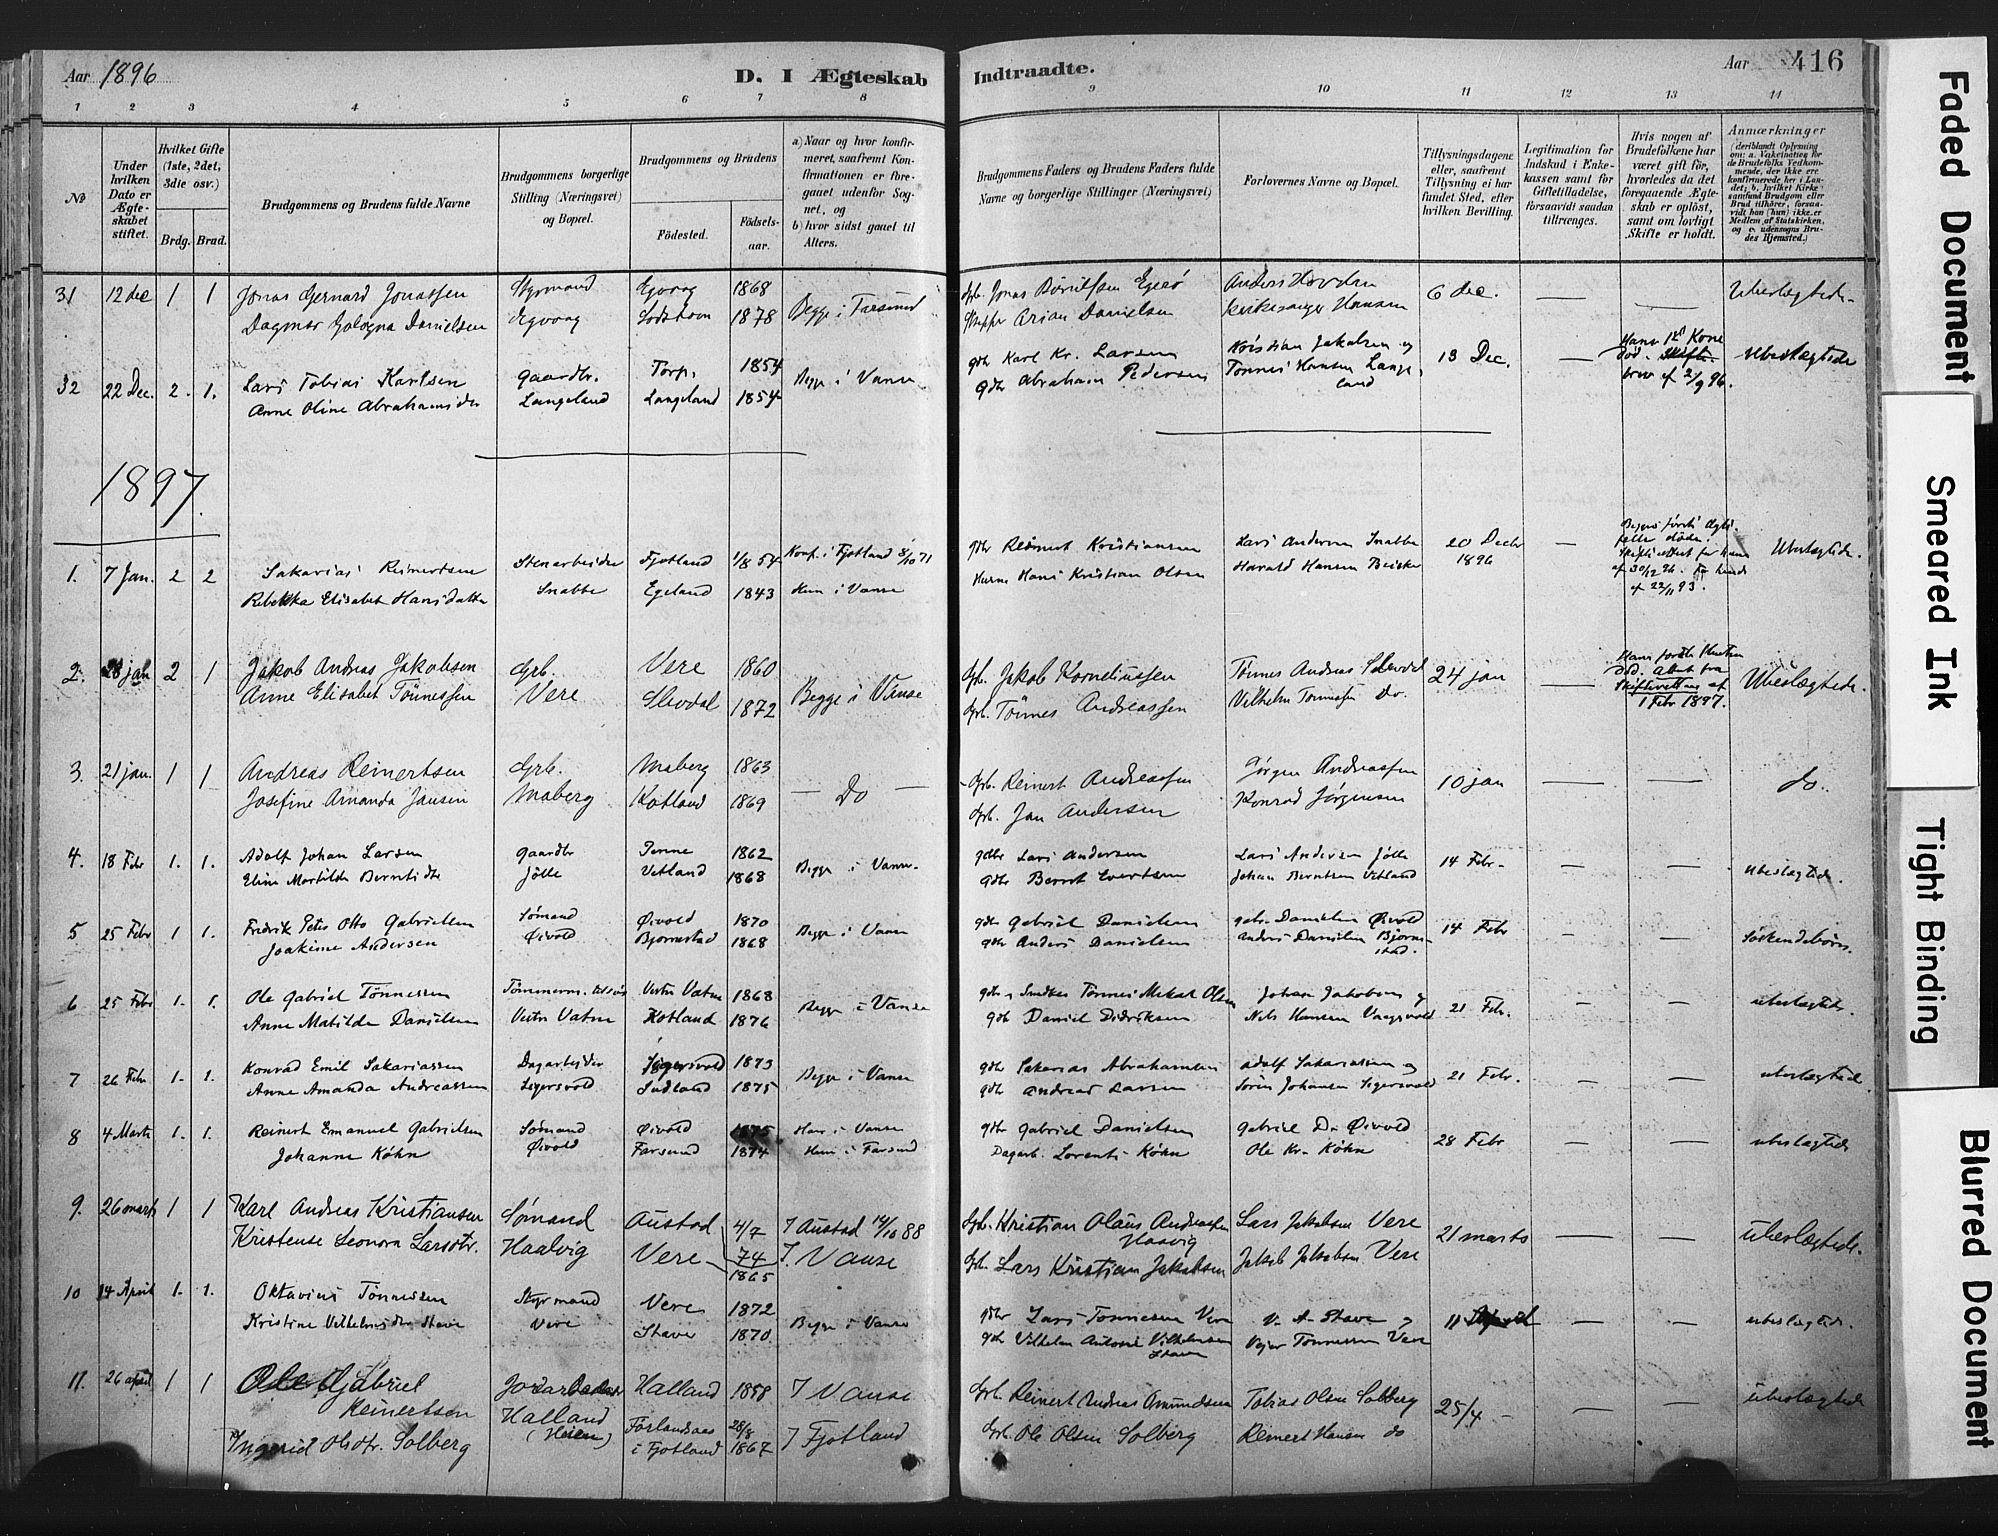 Aar 1896
D. I Ægteskab Indtraadte.
Aar 416
1 2 3 4 5 6 7 8 9 10 11 12 13 14
No
Under hvilken Dato er Ægteskabet stiftet.
Hvilket Gifte (1ste, 2det, 3die osv.)
Brdg. Brud.
Brudgommens og Brudens fulde Navne
Brudgommens borgerlige Stilling (Næringsvei) og Bopæl.
Brudgommens og Brudens
Fødested.
Fødselsaar.
a) Naar og hvor konfirmeret, saafremt Konfirmationen er foregaaet udenfor Sognet, og
b) hvor sidst gaaet til Alters.
Brudgommens Faders og Brudens Faders fulde Navne og borgerlige Stillinger (Næringsvei)
Forlovernes Navne og Bopæl.
Tillysningsdagene eller, saafremt Tillysning ei har fundet Sted, efter hvilken Bevilling.
Legitimation for Indskud i Enkekassen samt for Giftetilladelse, forsaavidt saadan tiltrænges.
Hvis nogen af Brudefolkene har været gift før, hvorledes da det foregaaende Ægteskab er opløst, samt om lovligt Skifte er holdt.
Anmærkninger
31 12 dec 1 1 Jonas Gernard Jonassen Styrmand Egvaag 1868 Begge i Farsund Jonas Anders Hovdan 6 dec. — — Ubeslægtede
Dagmar Danielsen Egvaag 1878 Arian Danielsen Kirkesanger Hansen
32 22 Dec. 2. 1. Lars Tobias Karlsen Gaardbr. Torp. 1854 Begge i Vanse gdbr Karl Kr. Larsen Kristian Jakobsen og 13 Dec. — Ubeslægtede
Anne Oline Abrahamsdtr Langeland Langeland 1854 gdbr Abraham Pedersen Tønnes Hansen Langeland
Hans 1ste Kone død. brev af 2/9 96.
1897.
1. 7 Jan. 2 2 Sakarias Reinertsen Stenarbeider Fjotland 1/8 54 Konf. i Fjotland 8/10 71 gdbr Reinert Kristiansen Lars Andersen Snabbe 20 Decbr 1896 — Ubeslægtede.
Rebekka Elisabet Hansdatter Snabbe Egeland 1843 Hun i Vanse Hans Kristian Olsen Harald Hansen
af 30/12 96. For hende af 22/11 93.
2. 28 jan 2 1 Jakob Andreas Jakobsen Grb. Vere 1860 Begge i Vanse Grb. Jakob Korneliussen Tønnes Andreas Slevdal 24 jan — Ubeslægtede.
Anne Elisabet Tønnessen Vere Slevdal 1872 Grb. Tønnes Andreassen Vilhelm Tønnesen Do.
Hans første Hustru død. Attest fra Skifteretten af 1 Febr 1897.
3. 21 jan. 1 1 Andreas Reinertsen Grb. Maberg 1863 — Do — Grb. Reinert Andreassen Jørgen Andreassen 10 jan — — do.
Josefine Amanda Jansen Maberg Kotland 1869 Grb. Jan Andersen Konrad Jørgensen
4. 18 Febr 1. 1. Adolf Johan Larsen Gaardbr 1862 Begge i Vanse gdbr Lars Andersen Lars Andersen Jølle 14 Febr — — Ubeslægtede.
Eline Martilde Berntsdtr Jølle Vetland 1868 gdbr Bernt Evertsen Johan Berntsen Vetland
5 25 Febr 1 1. Fredrik Peter Otto Gabrielsen Sømand Øivold 1870 Begge i Vanse gdbr Gabriel Danielsen Gabr. Danielsen Øivold 14 Febr — — Søskendebørn.
Joakime Andersen Øivold Bjørnestad 1868 gdbr Anders Danielsen Anders Danielsen Bjørnestad.
6 25 Febr 1. 1. Ole Gabriel Tønnessen Vestre Vatne 1868 Begge i Vanse Tønnes Mikal Olsen Johan Jakobsen og 21 Febr. — — ubeslægtede.
Anne Matilde Danielsen Vestre Vatne Kotland 1876 gdb Daniel Didriksen Nils Hansen Vaagsvold
7 26 Febr 1. 1. Konrad Emil Sakariassen Dagarbeider Sigersvold 1873 Begge i Vanse gdbr Sakarias Abrahamsen Adolf Sakariassen og 21 Febr. — — ubeslægtede
Anne Amanda Andreassen Sigersvold Sudland 1875 gdbr Andreas Larsen Søren Johansen Sigersvold
8 4 Marts 1. 1. Reinert Emanuel Gabrielsen Sømand Øivold 1875 Han i Vanse gdbr Gabriel Danielsen Gabriel D. Øivold 28 Febr — — ubeslægtede
Johanne Køhn Øivold Farsund 1874 Hun i Farsund Dagarb. Lorents Køhn Ole Kr. Køhn
9. 26 marts 1 1 Karl Andreas Kristiansen Sømand Austad 4/7 74 I Austad 14/10 88 Grb. Kristian Olaus Andreassen Haavig Lars Jakobsen Vere 21 marts — — ubeslægtede.
Kristense Leonora Larsdtr. Haalvig Vere 1865 I Vanse Grb. Lars Kristian Jakobsen Jakob Jakobsen Vere
10 14 April 1. 1. Oktavius Tønnessen Styrmand Vere 1872 Begge i Vanse gdbr Lars Tønnesen Vere V. A. Stave og 11 April — — ubeslægtede.
Kristine Vilhelmsdtr Stave Vere Stave 1870 gdbr Vilhelm Antoni Vilhelmsen Stave Tønnessen Vere
11. 26 april 1 1 Ole Gabriel Reinertsen Jordarbeider Halland 1858 I Vanse Grb. Reinert Andreas Amundsen Tobias Olsen Solberg 25/4 — — ubeslægtede
Ingerid Olsdtr. Solberg Halland (Heien) Førlandsaas i Fjotland 28/8 1867 I Fjotland Grb. Ole Olsen Solberg Reinert Hansen do
Faded Document
Smeared Ink
Tight Binding
Blurred Document